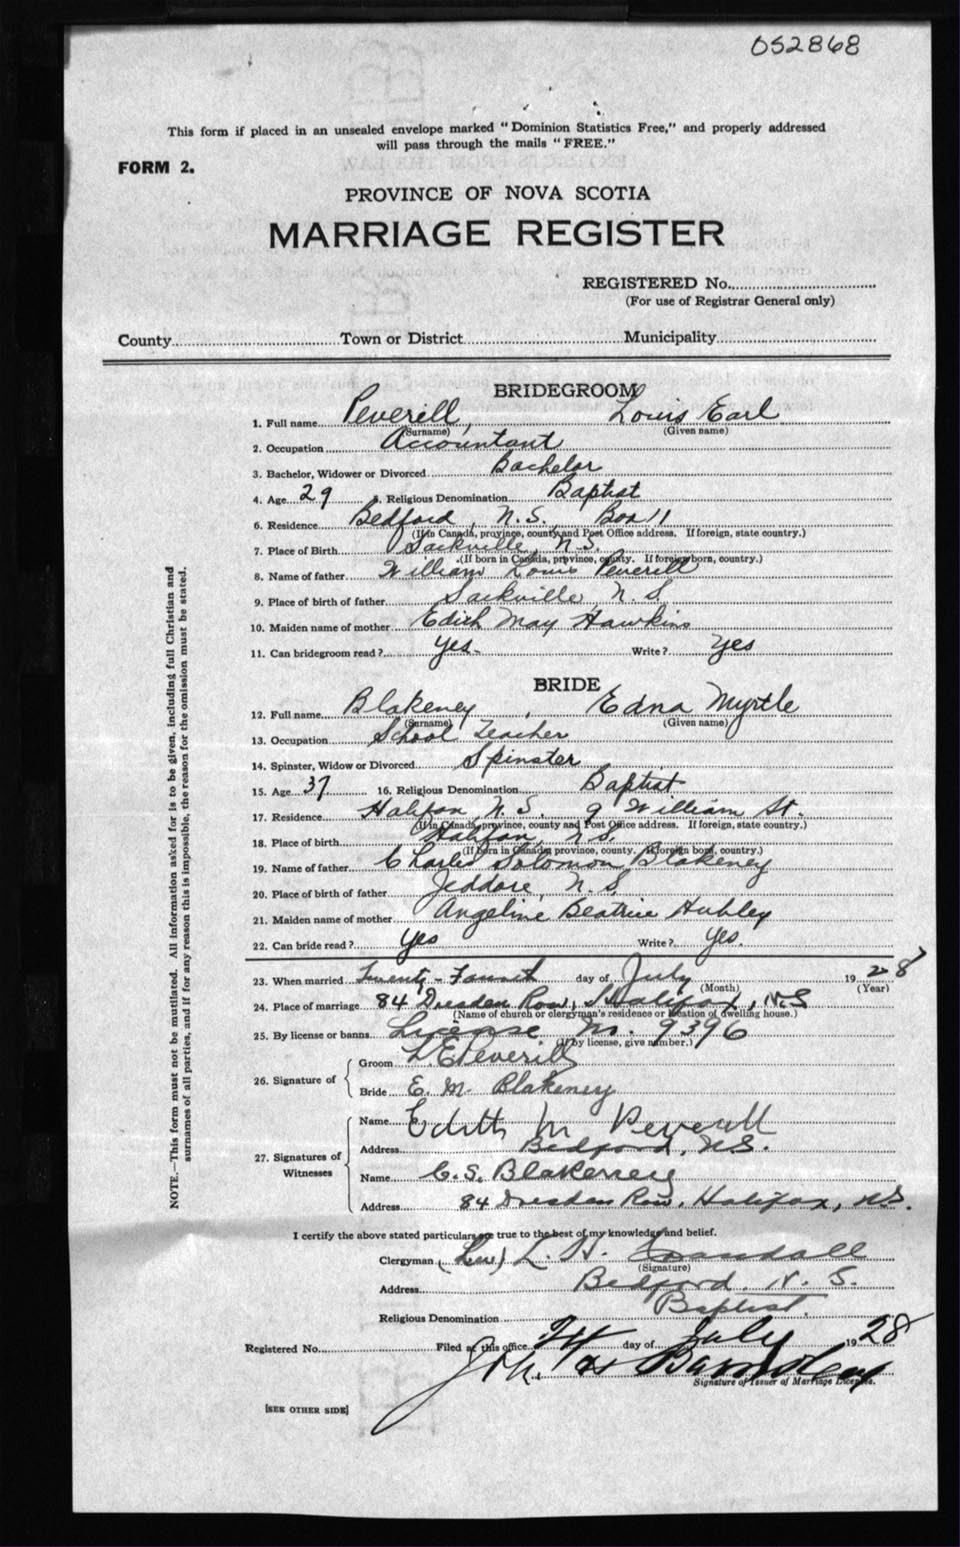 052868
This form if placed in an unsealed envelope marked "Dominion Statistics Free," and properly addressed
will pass through the mails "FREE."
FORM 2.
PROVINCE OF NOVA SCOTIA
MARRIAGE REGISTER
REGISTERED No.
(For use of Registrar General only)
County Town or District Municipality
BRIDEGROOM
1. Full name Peverill, Louis Earl
(Surname) (Given name)
2. Occupation Accountant
3. Bachelor, Widower or Divorced Bachelor
4. Age 29 5. Religious Denomination Baptist
6. Residence Bedford, N.S. Box 11
(If in Canada, province, county and Post Office address. If foreign, state country.)
7. Place of Birth Sackville, N.S.
(If born in Canada, province, county. If foreign born, country.)
8. Name of father William Louis Peverill
9. Place of birth of father Sackville, N.S
10. Maiden name of mother Edith May Hawkins
11. Can bridegroom read? Yes Write? Yes
BRIDE
12. Full name Blakeney, Edna Myrtle
(Surname) (Given name)
13. Occupation School Teacher
14. Spinster, Widow or Divorced Spinster
15. Age 37 16. Religious Denomination Baptist
17. Residence Halifax, N.S. 9 William St.
(If in Canada, province, county and Post Office address. If foreign, state country.)
18. Place of birth Halifax, N.S.
(If born in Canada, province, county. If foreign born, country.)
19. Name of father Charles Solomon Blakeney
20. Place of birth of father Jeddore, N.S
21. Maiden name of mother Angeline Beatrice Hubley
22. Can bride read? Yes Write? Yes.
23. When married Twenty-Fourth day of July 1928
(Month) (Year)
24. Place of marriage 84 Dresden Row, Halifax, N.S
(Name of church or clergyman's residence or location of dwelling house.)
25. By license or banns License No. 9396
(If by license, give number.)
26. Signature of
Groom L. E. Peverill
Bride E. M. Blakeney
27. Signatures of
Witnesses
Name Edith M Peverill
Address Bedford, N.S.
Name C. S. Blakeney
Address 84 Dresden Row, Halifax, N.S.
I certify the above stated particulars are true to the best of my knowledge and belief.
Clergyman (Rev) L. H. Crandall
(Signature)
Address Bedford, N. S.
Religious Denomination Baptist.
Registered No. Filed at this office 24 day of July 1928
Signature of Issuer of Marriage Licenses.
[SEE OTHER SIDE]
NOTE.—This form must not be mutilated. All information asked for is to be given, including full Christian and
surnames of all parties, and if for any reason this is impossible, the reason for the omission must be stated.